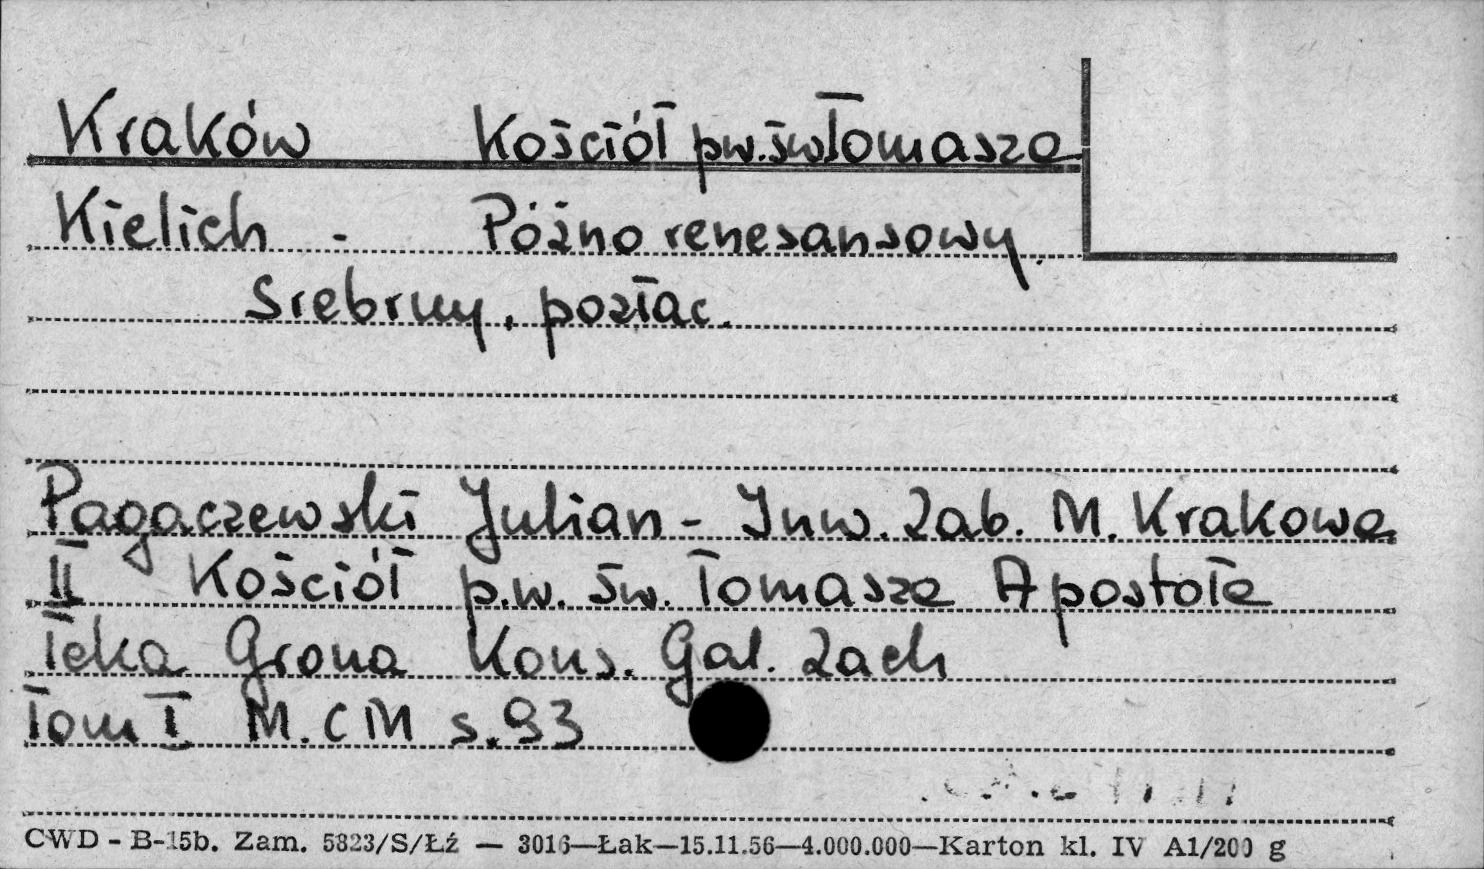 Kraków Kościół pw. św Tomasza
Kielich - Późno renesansowy
Srebrny, pozłac.
Pagaczewski Julian - Inw. Zab. M. Krakowa
II Kościół p.w. św. Tomasza Apostoła
Teka Grona Kons. Gal. Zach
Tom I M.CM s. 93
CWD - B-15b. Zam. 5823/S/Łź — 3016—Łak—15.11.56—4.000.000—Karton kl. IV A1/200 g